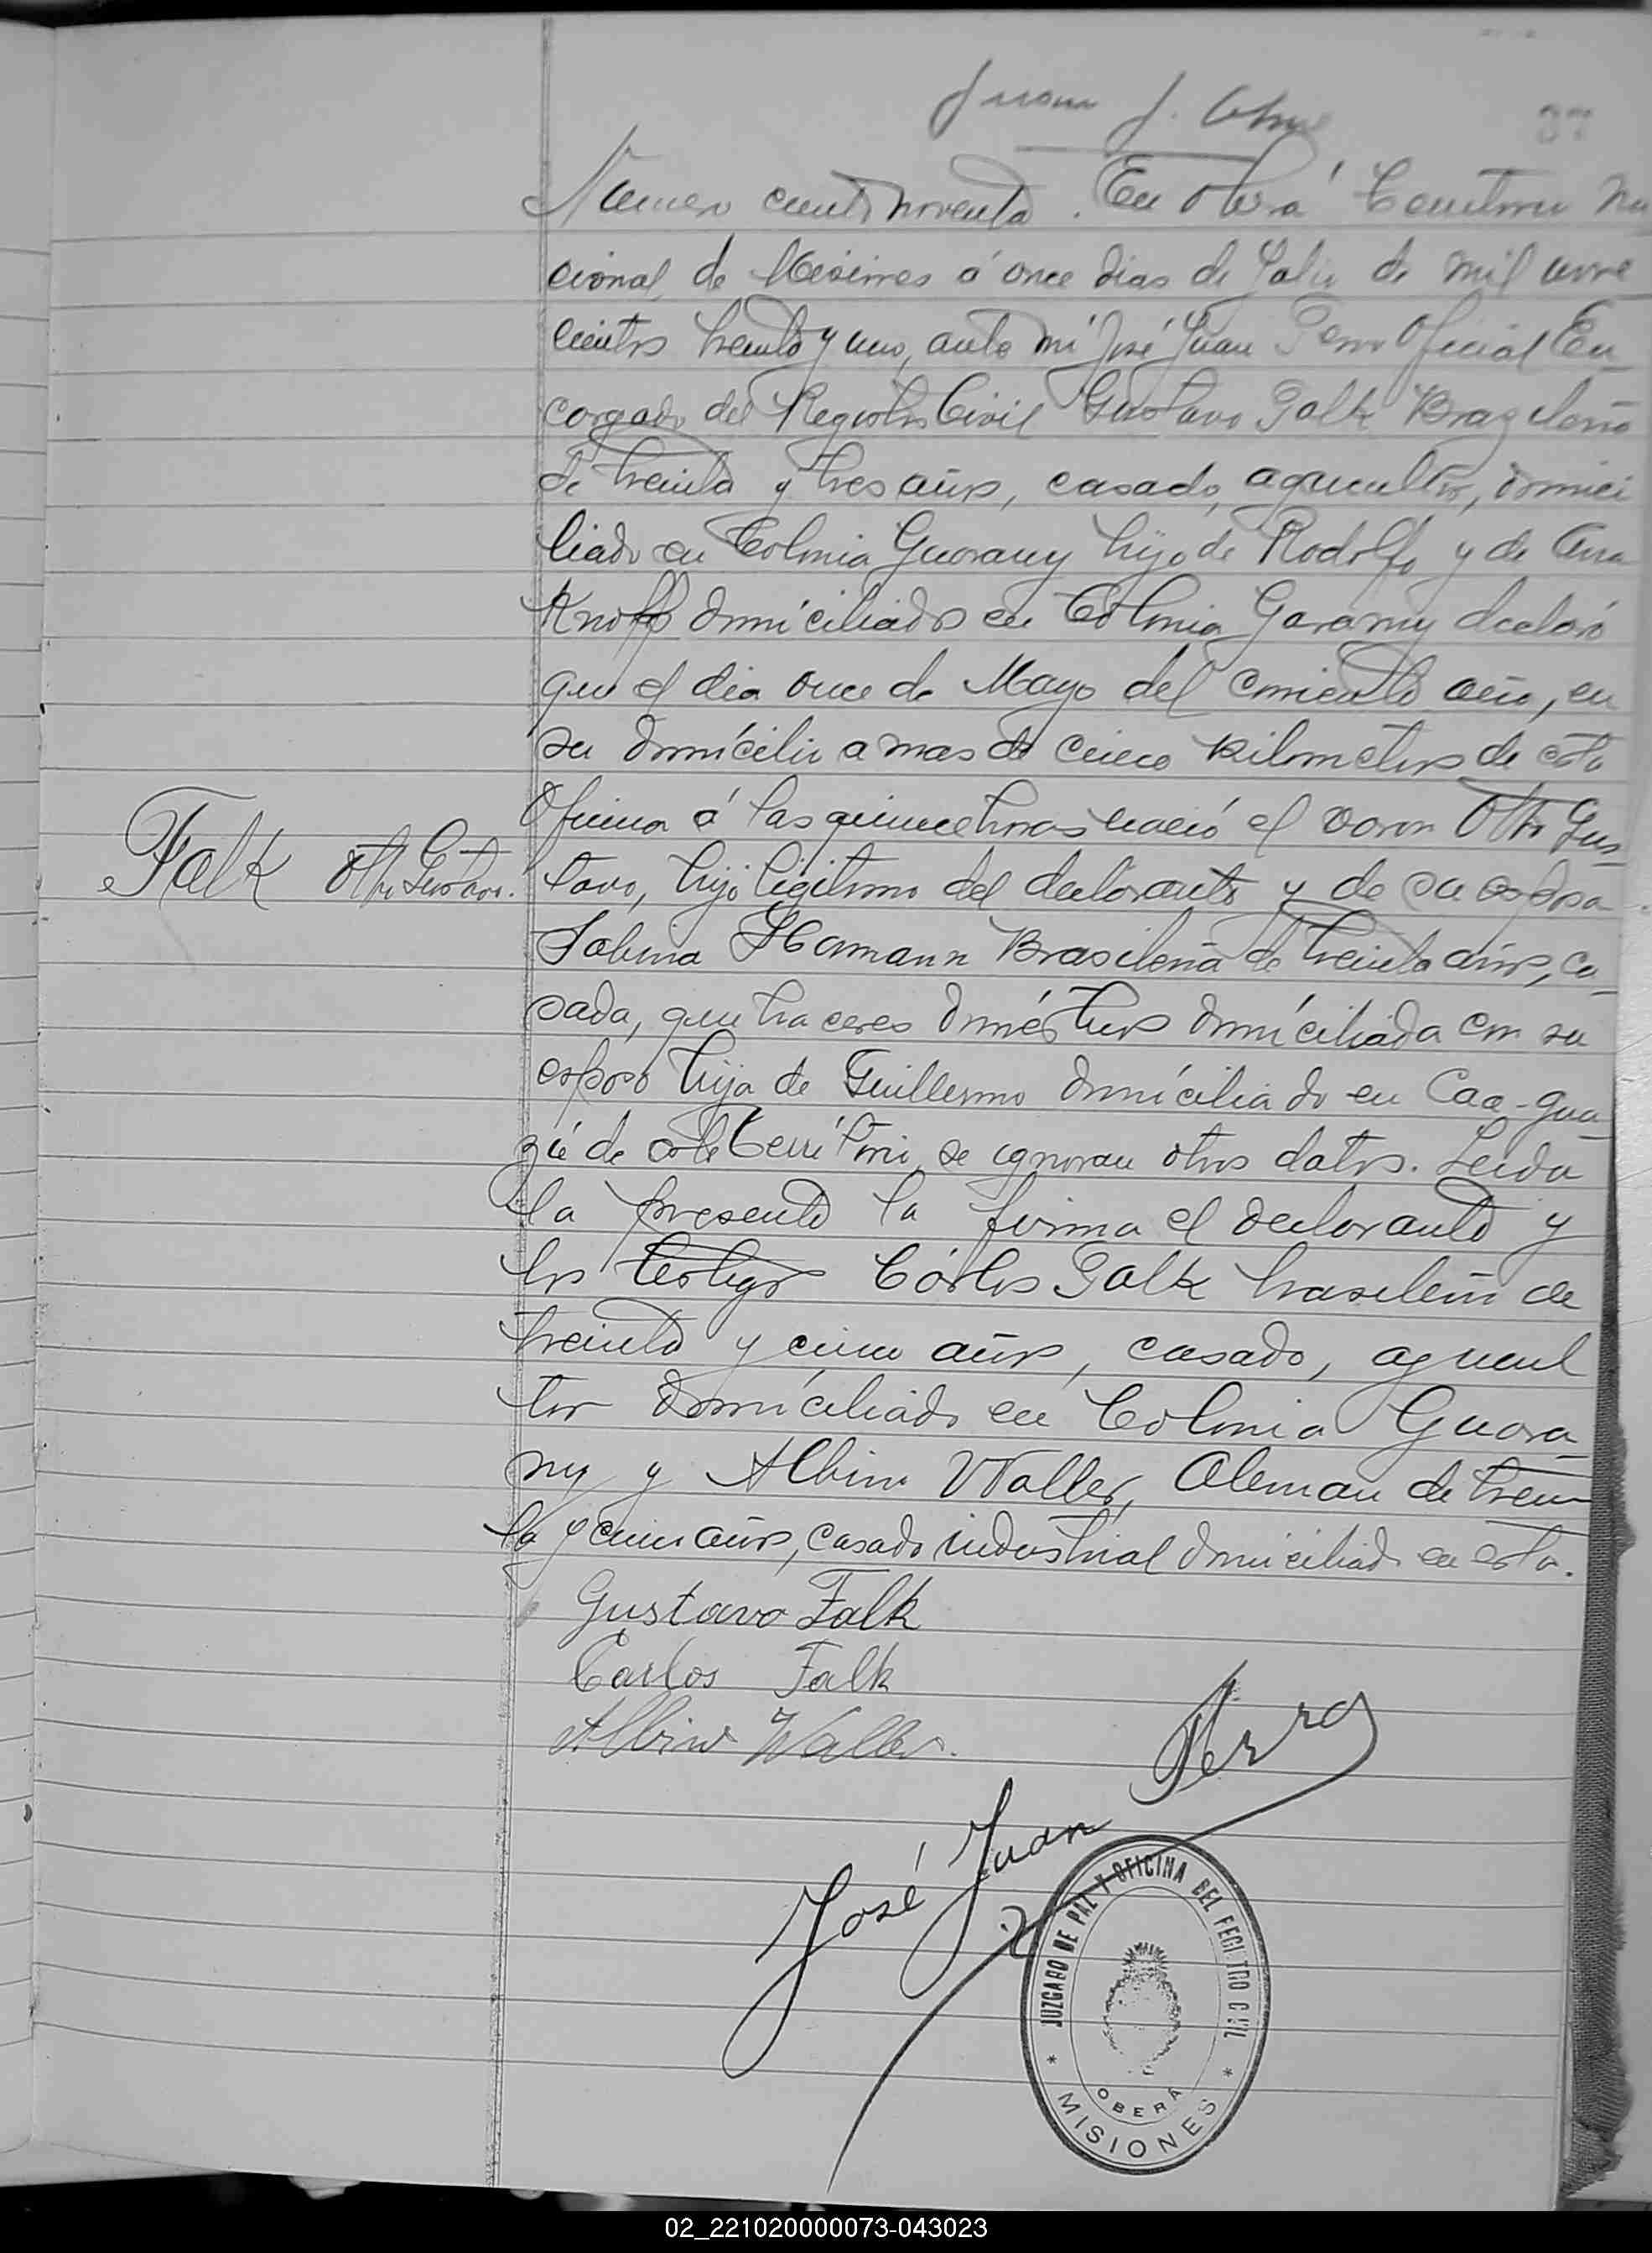 Juan J.
37
Numero ciento noventa. En Oberá Territorio Na
cional de Misiones á once dias de Julio de mil nove
cientos treinta y uno, ante mi José Juan Perro Oficial En-
cargado del Registro Civil Gustavo Falk Brazileño
de treinta y tres años, casado, agricultor, domici
liado en Colonia Guarany hijo de Rodolfo y de Ana
Knoff domiciliados en Colonia Garany declaró
que el dia once de Mayo del corriente año, en
su domicilio a mas de cinco kilometros de esta
Oficina á las quince horas nació el varon Otto Gus-
Falk Otto Gustavo.
tavo, hijo legitimo del declarante y de su esposa
Sabina Hamann Brasileña de treinta años, ca-
sada, quehaceres domésticos domiciliada con su
esposo hija de Guillermo domiciliado en Caa-gua
zú de este Territorio, se ignoran otros datos. Leida
la presente la firma el declarante y
los testigos Cárlos Falk brasileño de
treinta y cinco años, casado, agricul
tor domiciliado en Colonia Guara-
ny y Albino Waller, Aleman de trein
ta y cinco años, casado industrial domiciliado en esta.
Gustavo Falk
Carlos Falk
Albino Waller.
José Juan Perro
JUZGADO DE PAZ Y OFICINA DEL REGISTRO CIVIL
* OBERÁ *
MISIONES
02_221020000073-043023